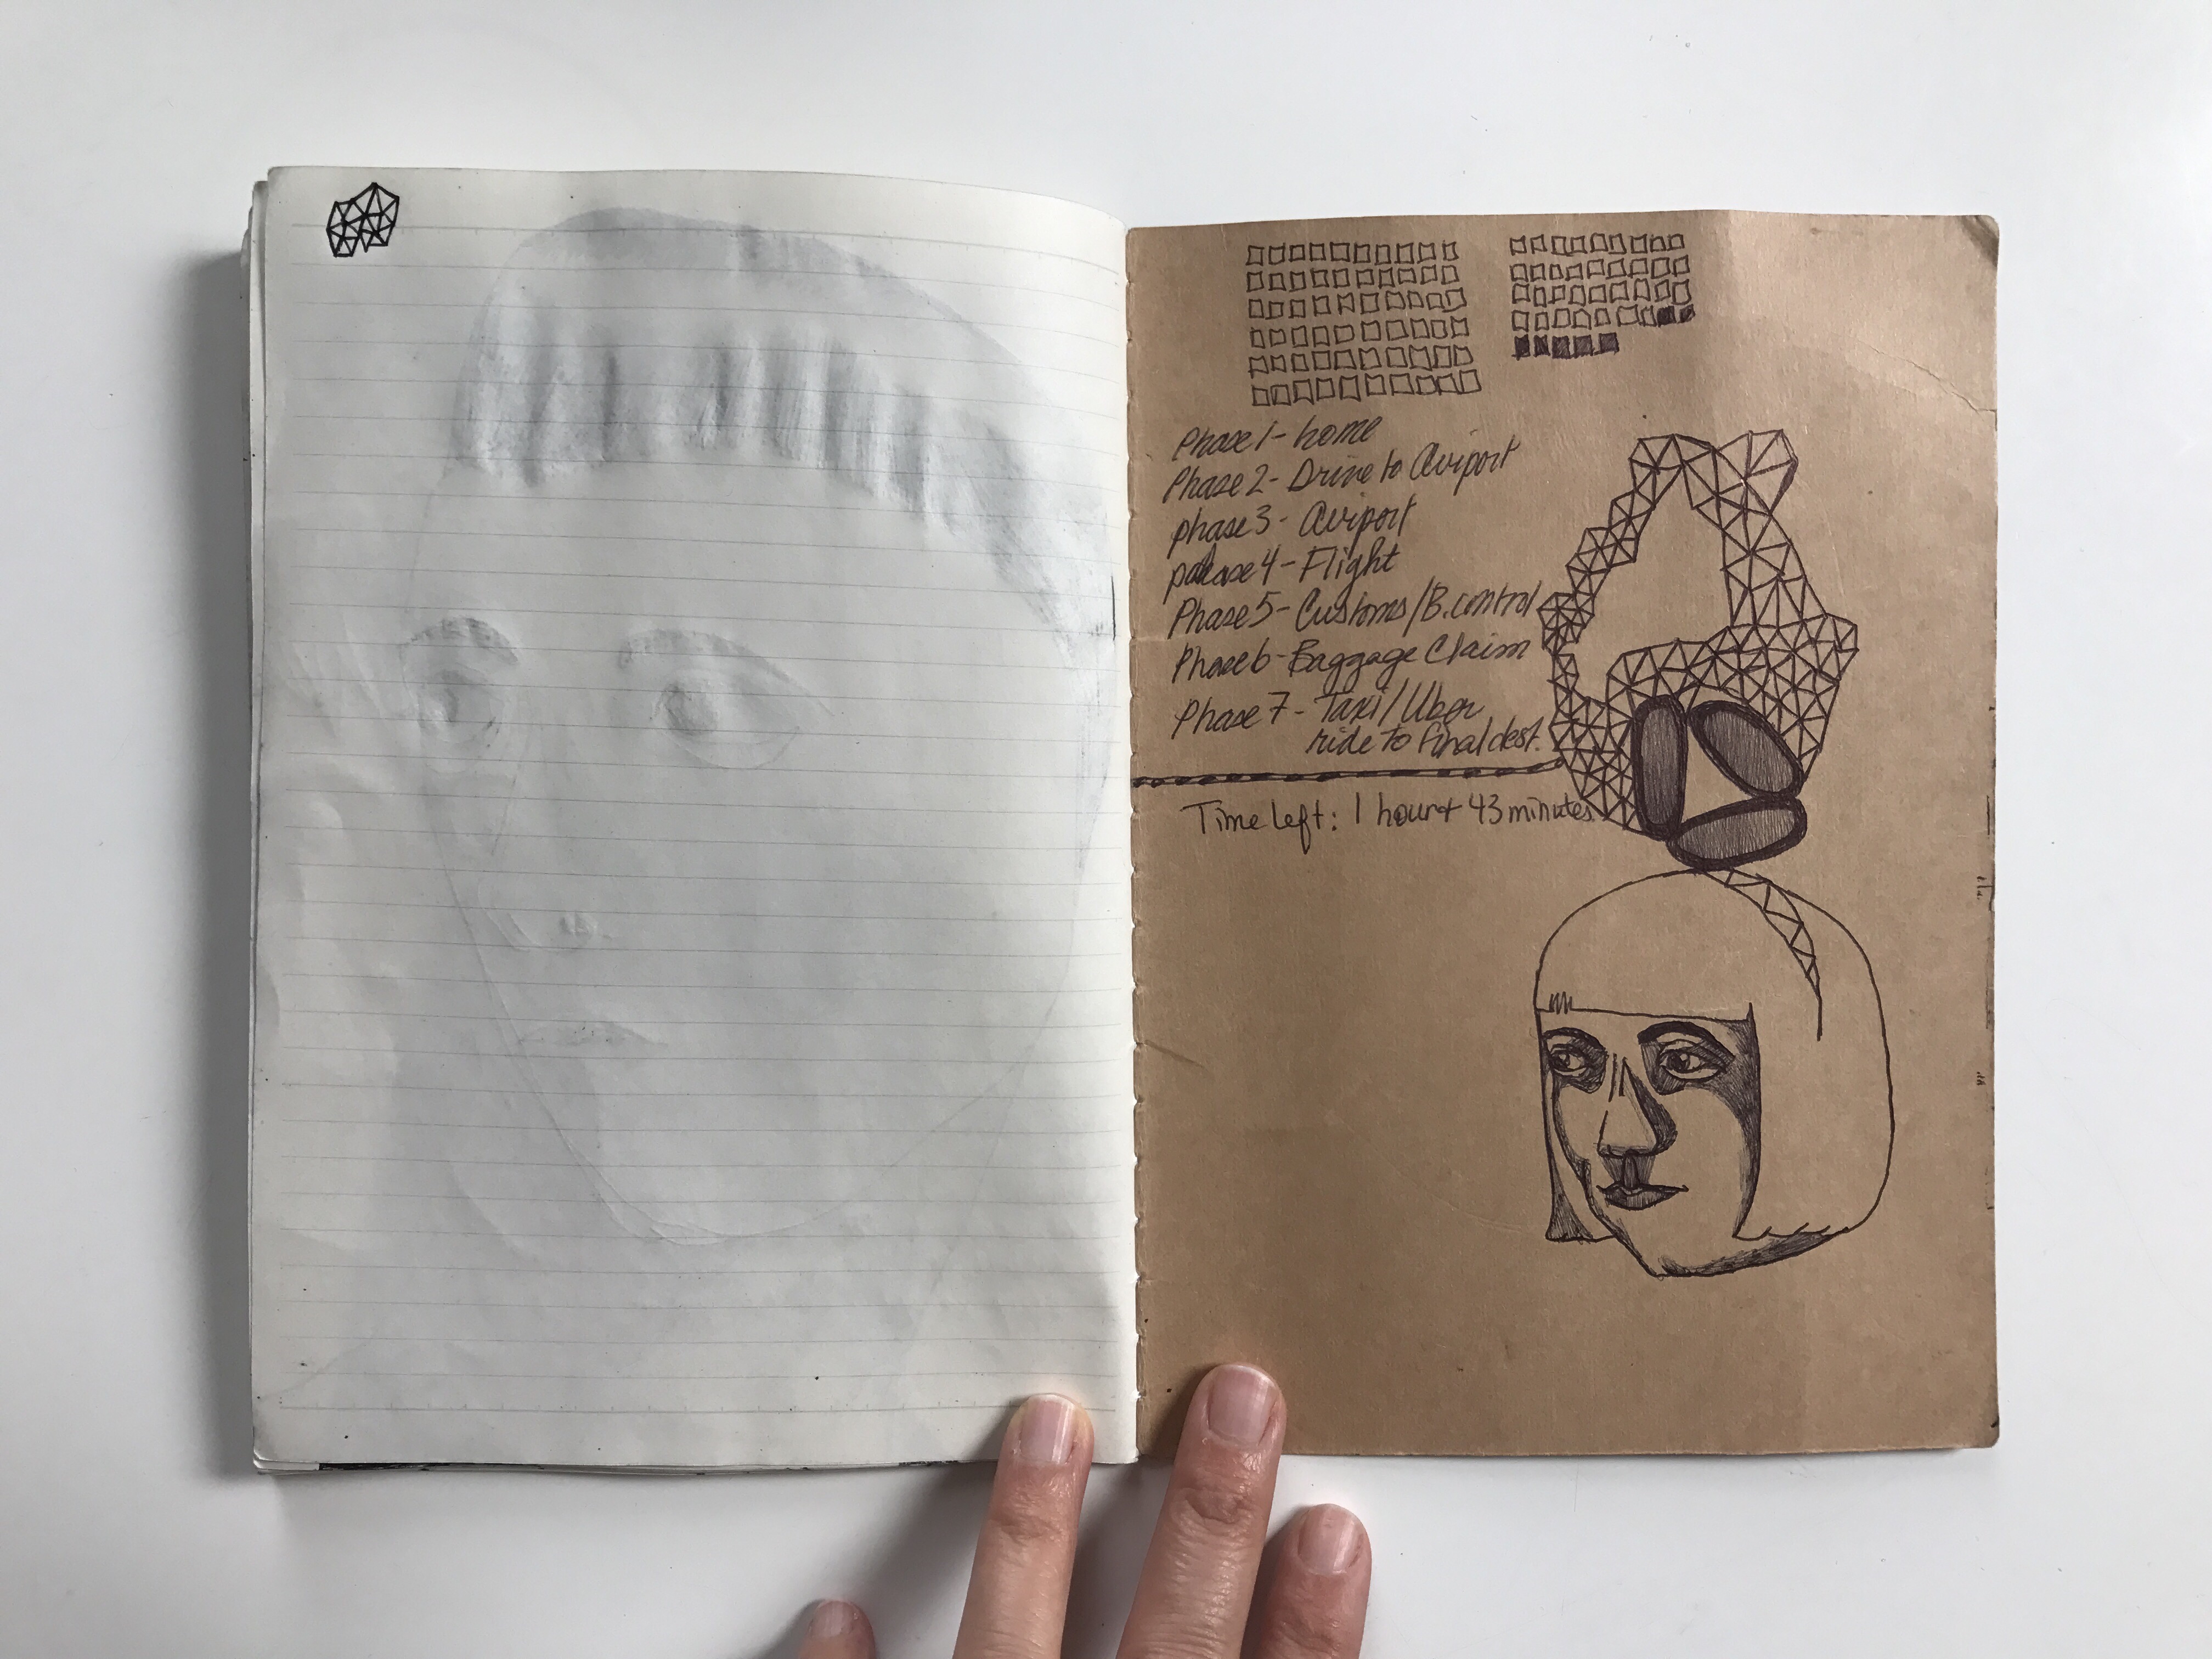 Phase 1- home
Phase 2- Drive to Airport
phase 3- Airport
phase 4- Flight
Phase 5- Customs/B.control
Phase 6- Baggage Claim
Phase 7- Taxi/Uber
ride to final dest.
Time left: 1 hour + 43 minutes